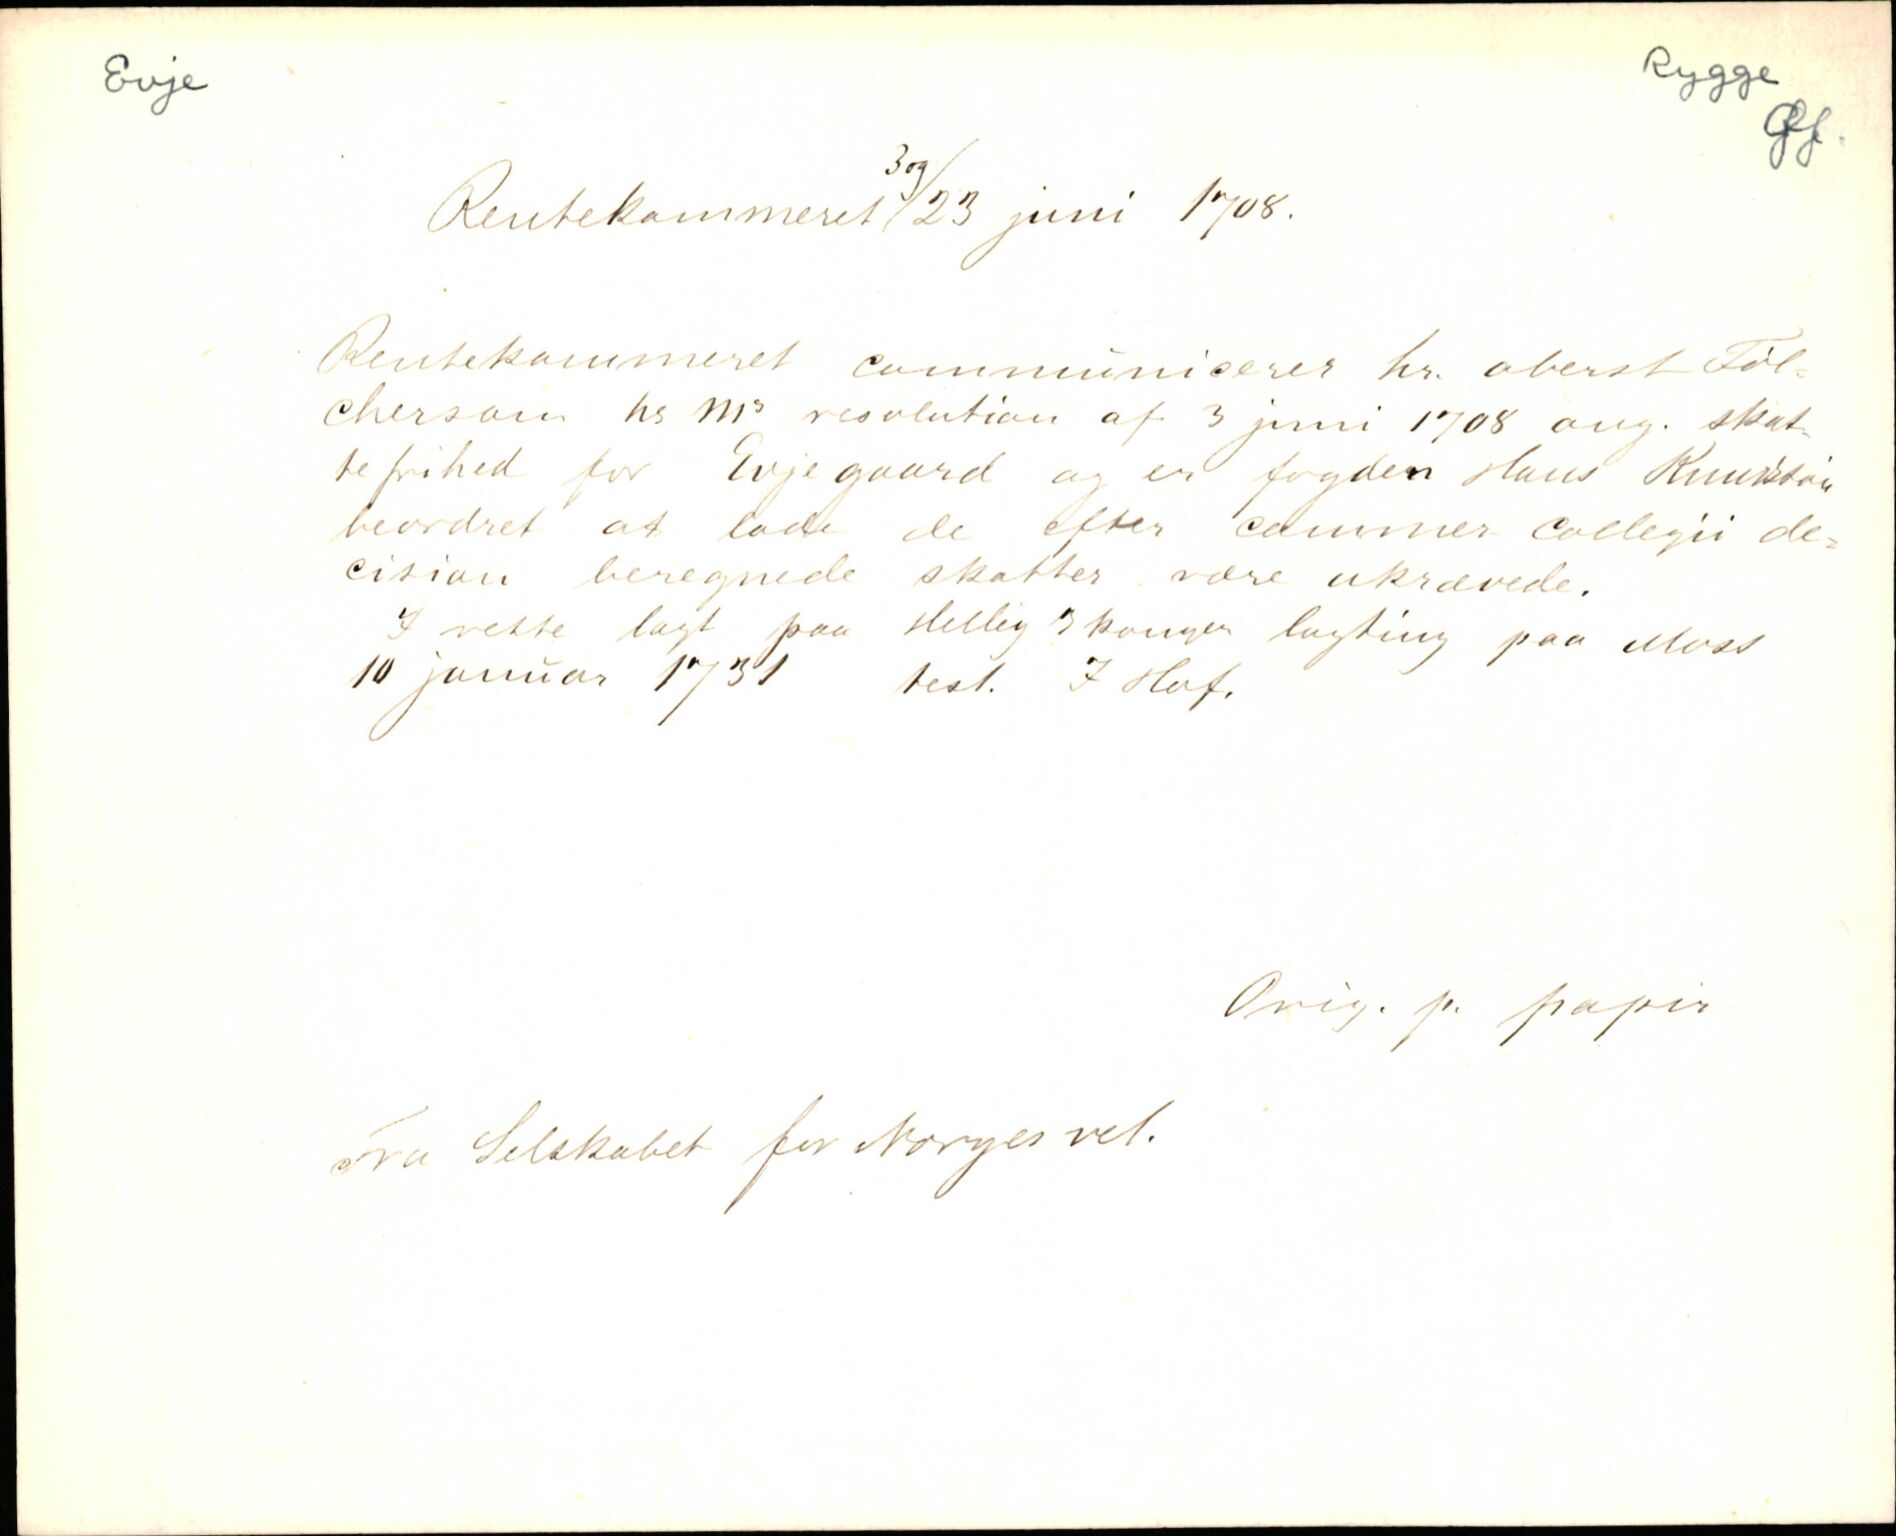 Evje
Rygge
Rentekammeret 3 og/23 juni 1708.
Rentekammeret communicerer hr. oberst Föl-
chersam hs Ms resolution af 3 juni 1708 ang. skat-
tefrihed for Evje gaard og er fogden Hans
beordret at lade de efter cammer collegii de-
cision beregnede skatter være ukrævede.
I rette lagt paa Hellig 3 konger lagting paa Moss
10 januar 1731 test. I Hof.
Orig. p. papir
Fra Selskabet for Norges vel.